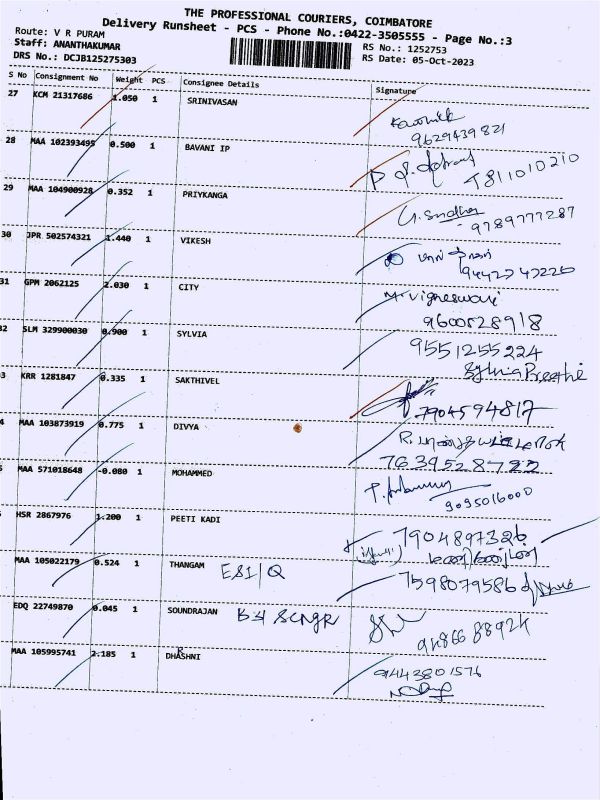 THE PROFESSIONAL COURIERS, COIMBATORE
Delivery Runsheet - PCS - Phone No.:0422-3505555 - Page No.:3
Route: V R PURAM
Staff: ANANTHAKUMAR
RS No.: 1252753
DRS No.: DCJB125275303
RS Date: 05-Oct-2023
S No Consignment No Weight PCS Consignee Details Signature
27 KCM 21317686 1.050 1 SRINIVASAN
9629439821
28 MAA 102393495 0.500 1 BAVANI IP
9811010210
29 MAA 104900928 0.352 1 PRIYKANGA
9789777287
30 JPR 502574321 1.440 1 VIKESH
9442747220
31 GPM 2062125 2.030 1 CITY M.vigneswari
9600528918
32 SLM 329900030 0.900 1 SYLVIA 9551255224
3 KRR 1281847 0.335 1 SAKTHIVEL
7904594817
4 MAA 103873919 0.775 1 DIVYA
7639528722
MAA 571018648 -0.080 1 MOHAMMED
9095016000
HSR 2867976 1.200 1 PEETI KADI 7904897326
MAA 105022179 0.524 1 THANGAM ESI/Q 7598079586
EDQ 22749870 0.045 1 SOUNDRAJAN
MAA 105995741 2.185 1 DHASHNI 9443801576